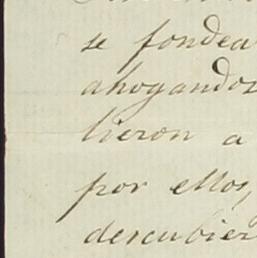 se fondea
ahogandos
lieron a
por ellos,
descubier